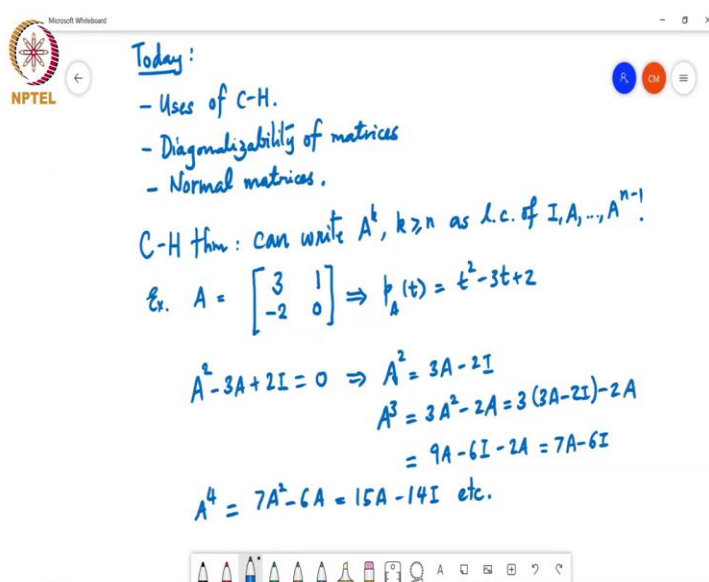 Microsoft Whiteboard
NPTEL
CM
Today:
- Uses of C-H.
- Diagonalizability of matrices
- Normal matrices.
C-H thm: can write A^k, k≥n as l.c. of I, A, ..., A^{n-1}!
Ex. A = [3 1; -2 0] ⇒ p_A(t) = t^2-3t+2
A^2-3A+2I=0 ⇒ A^2 = 3A-2I
A^3 = 3A^2-2A = 3(3A-2I)-2A
= 9A-6I-2A = 7A-6I
A^4 = 7A^2-6A = 15A-14I etc.